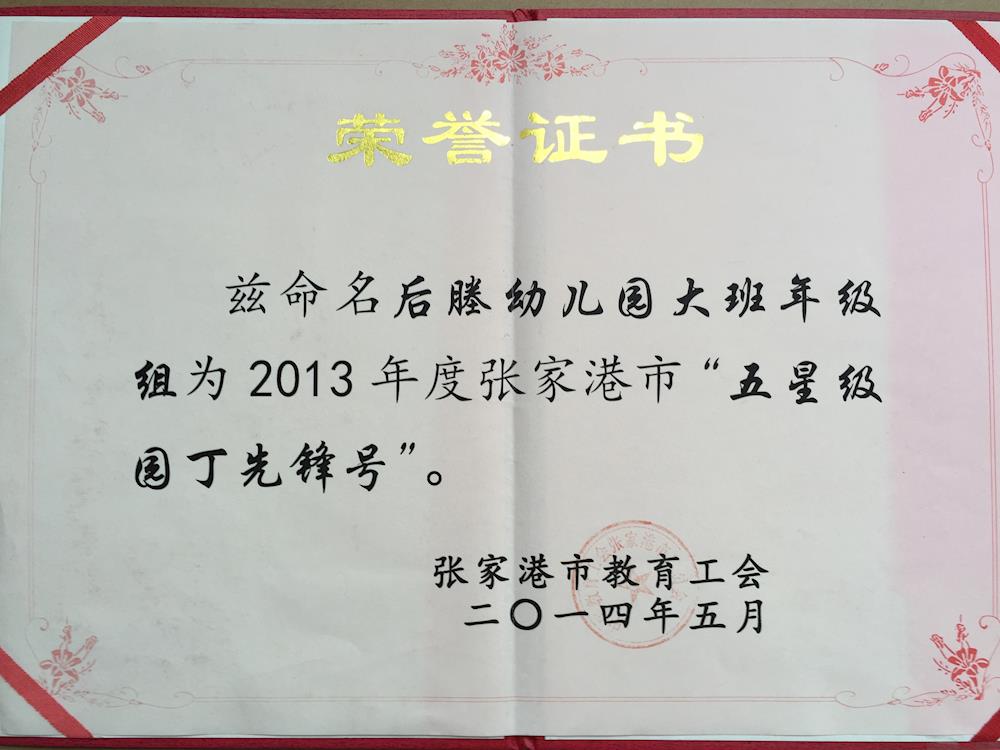 荣誉证书
兹命名后塍幼儿园大班年级
组为 2013 年度张家港市“五星级
园丁先锋号”。
张家港市教育工会
二〇一四年五月